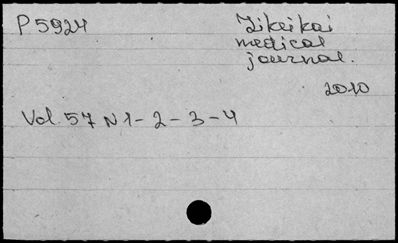 P5924 Jikeikai
medical
journal.
2010
Vol. 57 N 1 - 2 - 3 - 4